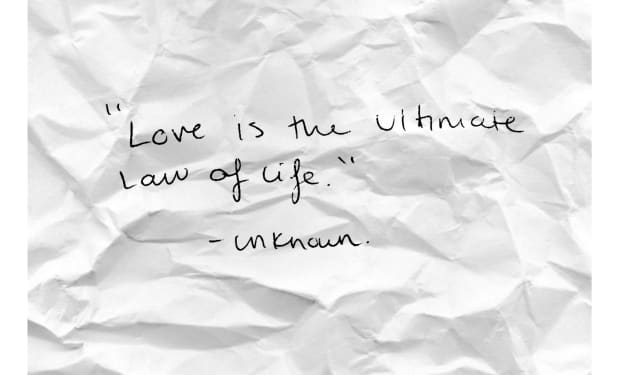 "Love is the ultimate
Law of life."
- unknown.